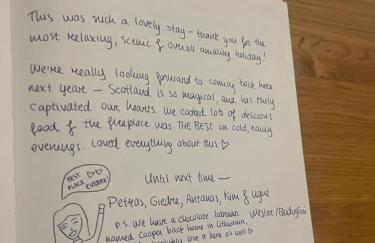 This was such a lovely stay – thank you for the
most relaxing, scenic & overall amazing holiday!
We're really looking forward to coming back here
next year – Scotland is so magical, and has truly
captivated our hearts. We cooked lots of delicious
food & the fireplace was THE BEST on cold, rainy
evenings. Loved everything about this ♡
Until next time —
BEST ♡♡
PLACE EVERRR!
Petras, Giedre, Antanas, Kim & Ugne
P.S. We have a chocolate labrador
named Cooper back home in Lithuania,
love it here as well